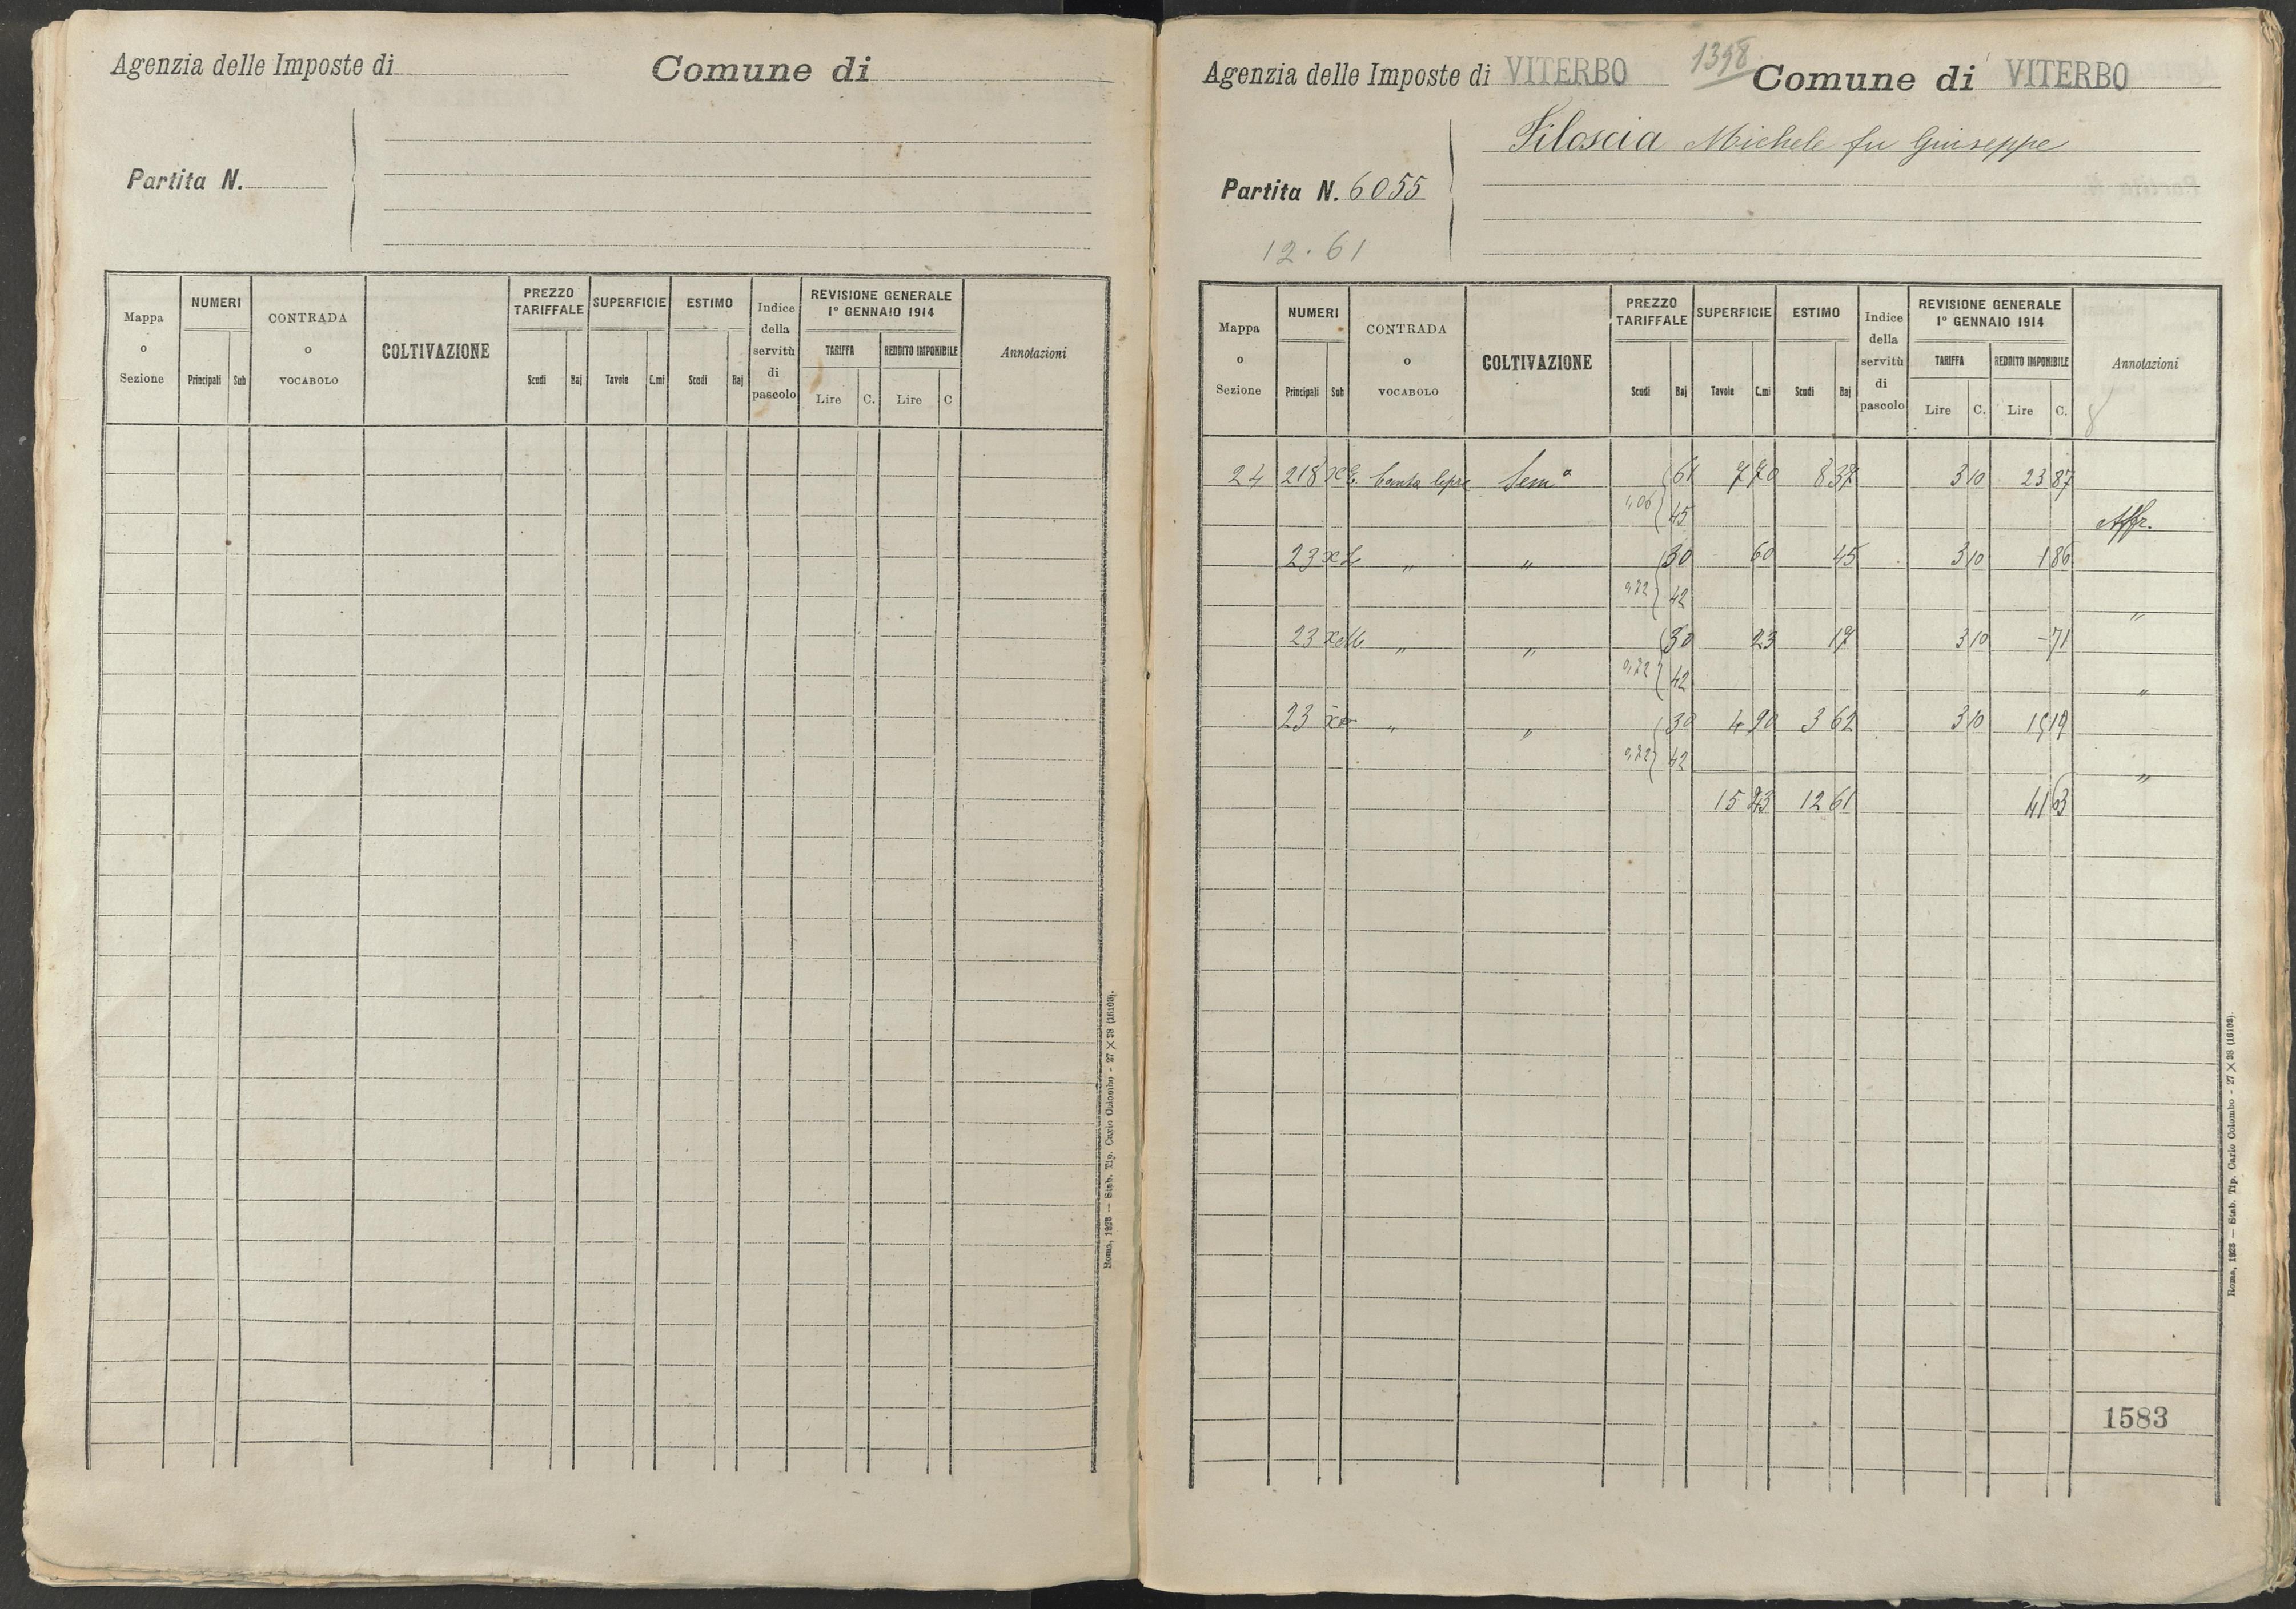 Agenzia delle Imposte di
Comune di
Partita N.
Mappa o Sezione
NUMERI
Principali Sub
CONTRADA o VOCABOLO
COLTIVAZIONE
PREZZO TARIFFALE
Scudi Baj
SUPERFICIE
Tavole C.mi
ESTIMO
Scudi Baj
Indice della servitù di pascolo
REVISIONE GENERALE
1° GENNAIO 1914
TARIFFA
Lire C.
REDDITO IMPONIBILE
Lire C
Annotazioni
Roma, 1925 — Stab. Tip. Carlo Colombo - 27 X 38 (16108).
Agenzia delle Imposte di VITERBO 1398 Comune di VITERBO
Filoscia Michele fu Giuseppe
Partita N. 6055
12.61
Mappa o Sezione
NUMERI
Principali Sub
CONTRADA o VOCABOLO
COLTIVAZIONE
PREZZO TARIFFALE
Scudi Baj
SUPERFICIE
Tavole C.mi
ESTIMO
Scudi Baj
Indice della servitù di pascolo
REVISIONE GENERALE
1° GENNAIO 1914
TARIFFA
Lire C.
REDDITO IMPONIBILE
Lire C.
Annotazioni
8
24 218 Canta lepre Sem° 61 7 70 8 37 3 10 23 87
1,06 45 Affr.
23 " " 30 60 45 3 10 1 86
0,72 42 "
23 " " 30 23 17 3 10 - 71
0,72 42 "
23 " " 30 4 90 3 62 3 10 15 19
0,72 42 "
15 43 12 61 41 63
1583
Roma, 1925 — Stab. Tip. Carlo Colombo - 27 X 38 (16108).